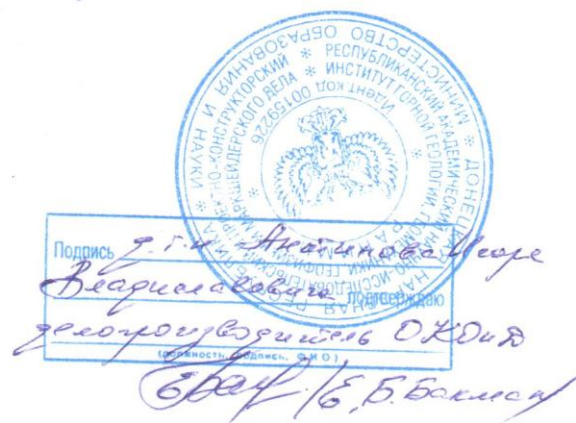 МИНИСТЕРСТВО ОБРАЗОВАНИЯ И НАУКИ * ДОНЕЦКАЯ НАРОДНАЯ РЕСПУБЛИКА *
РЕСПУБЛИКАНСКИЙ АКАДЕМИЧЕСКИЙ НАУЧНО-ИССЛЕДОВАТЕЛЬСКИЙ И ПРОЕКТНО-КОНСТРУКТОРСКИЙ
ИНСТИТУТ ГОРНОЙ ГЕОЛОГИИ, ГЕОМЕХАНИКИ, ГЕОФИЗИКИ И МАРКШЕЙДЕРСКОГО ДЕЛА
Идент код 00159226
Подпись д.т.н Анциферова Игоре
Владиславовича подтверждаю
делопроизводитель ОКДиД
(должность, подпись, Ф И О)
/Е.Б. Бакман/